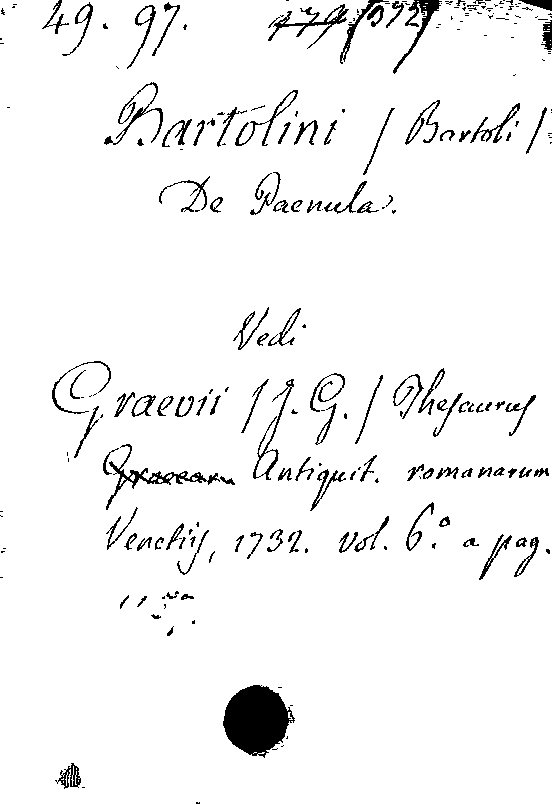 49. 97. (372)
Bartolini / Bartoli /
De Paenula.
Vedi
Graevii / J. G. / Thesaurus
Antiquit. romanarum
Venetiis, 1732. vol. 6.º a pag.